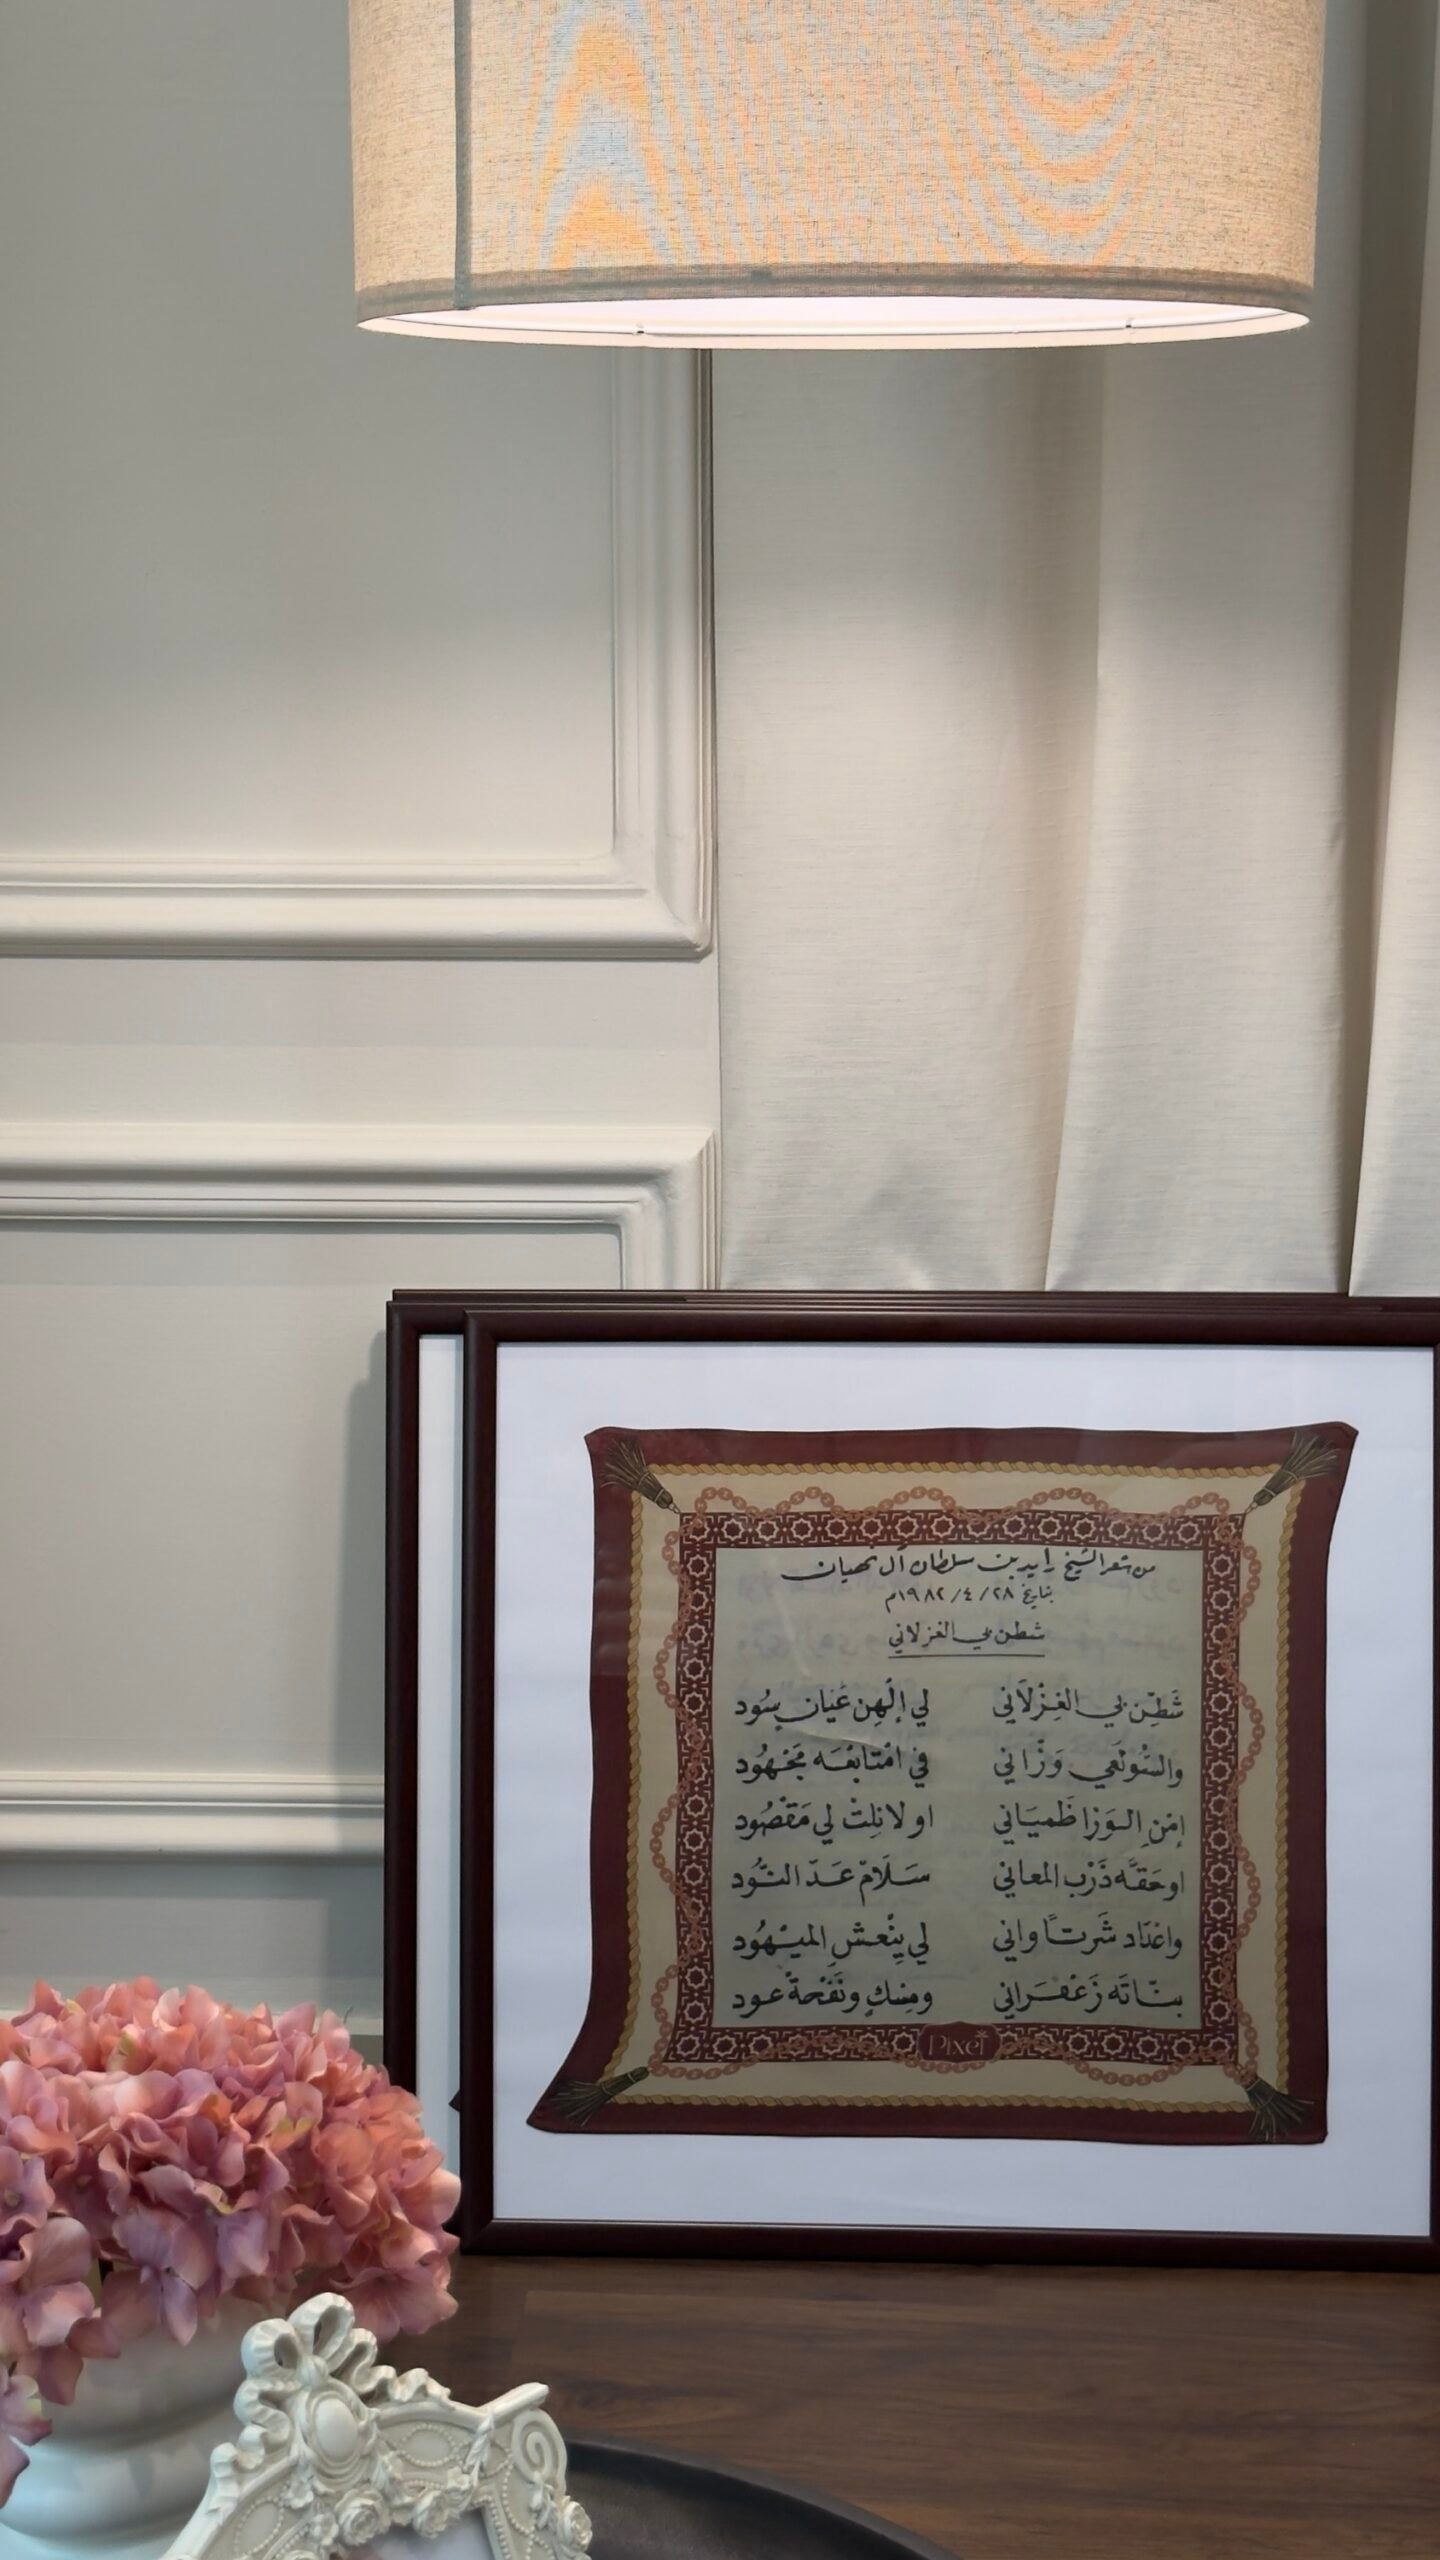 من شعر الشيخ زايد بن سلطان آل نهيان
بتاريخ ٢٨/٤/١٩٨٢م
شطن بي الغزلاني
شَطِّن بي الغِزْلَاني لي إلْهِن عْيان سُود
والسُّولَعي وَزَّاني في امْتابعَه مَجْهُود
إمْنِ الوَزا ظَميَاني او لا نِلِتْ لي مَقْصُود
اوحَقَّه ذَرْب المعاني سَلَامْ عَدّ النُّود
واعْدَاد شَرتاً واني لي يِنْعشِ الميْهُود
بنَاتَه زَعْفَراني ومِسْكٍ ونَفْحَةْ عود
Pixel